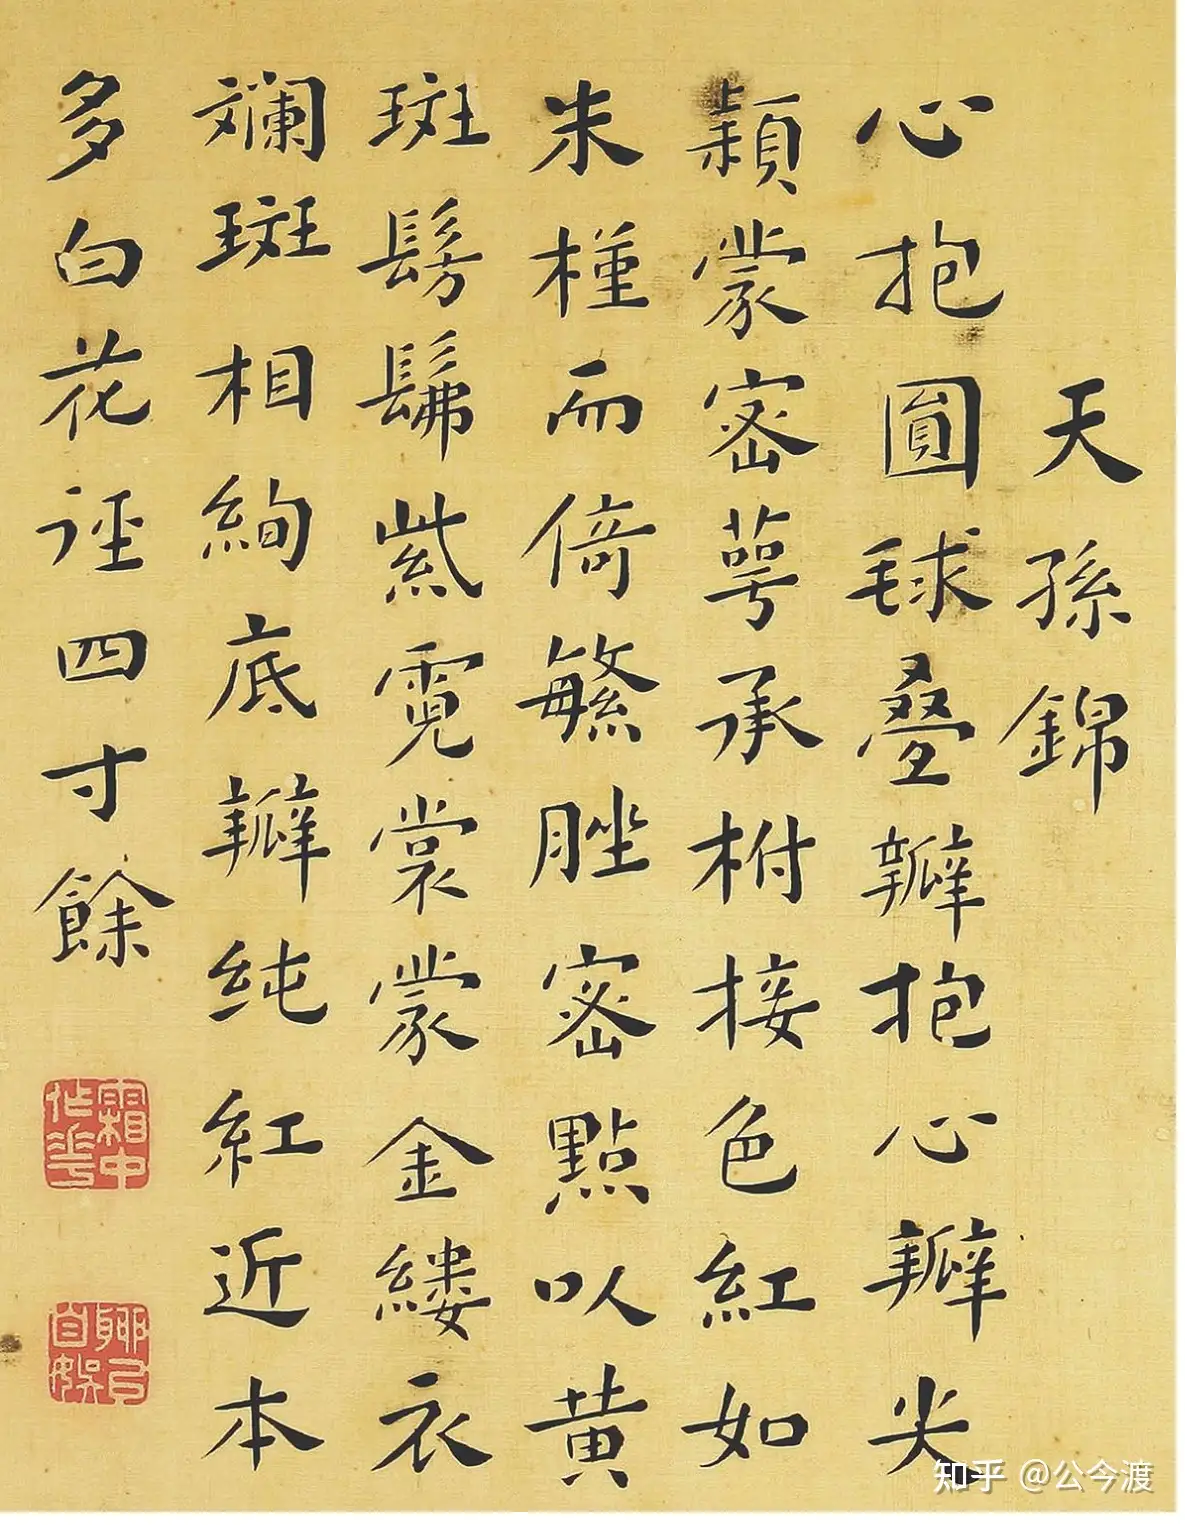 天孫錦
心抱圓毬叠瓣抱心瓣尖
穎蒙密萼承柎接色紅如
朱槿而倚繁脞密點以黃
斑髣髴紫霓裳蒙金縷衣
斕斑相絢底瓣純紅近本
多白花徑四寸餘
霜中作花
聊以自娛
知乎 @公今渡